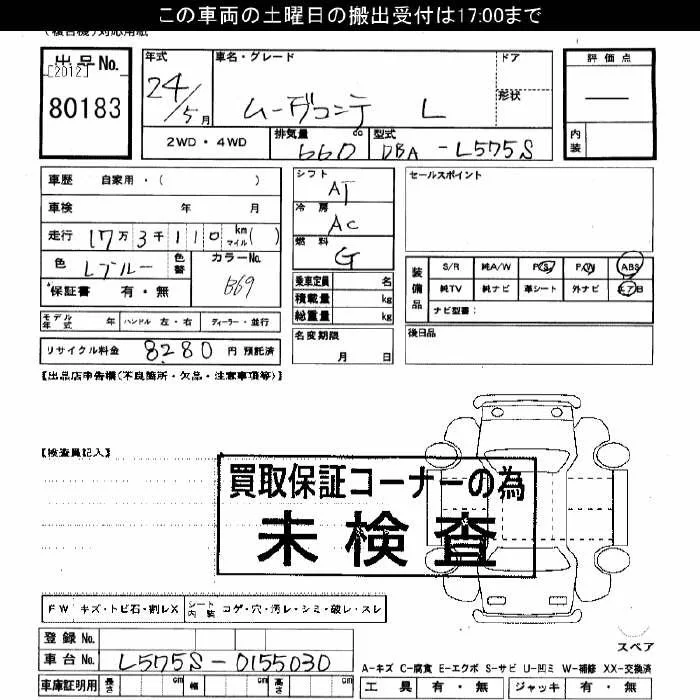 この車両の土曜日の搬出受付は17:00まで
出品No.
[2012]
80183
年式
24/5月
車名・グレード
ムーヴコンテ L
ドア
形状
評価点
—
内装
2WD・4WD
排気量 660 cc
型式 DBA-L575S
車歴 自家用・( )
車検 年 月
走行 17万3千110 km マイル( )
色 Lブルー 色替
カラーNo. B69
保証書 有・無
シフト AT
冷房 AC
燃料 G
乗車定員 名
積載量 kg
総重量 kg
セールスポイント
装備品
S/R 純A/W P/S P/W ABS
純TV 純ナビ 革シート 外ナビ エアB
ナビ型番:
モデル年式 年 ハンドル 左・右 ディーラー・並行
リサイクル料金 8280 円 預託済
名変期限 月 日
後日品
【出品店申告欄(不良箇所・欠品・注意事項等)】
【検査員記入】
買取保証コーナーの為
未検査
FW キズ・トビ石・割レX シート内装 コゲ・穴・汚レ・シミ・破レ・スレ
登録No.
車台No. L575S-0155030
スペア
A-キズ C-腐食 E-エクボ S-サビ U-凹ミ W-補修 XX-交換済
車庫証明用 長さ cm 幅 cm 高さ cm
工具 有・無 ジャッキ 有・無